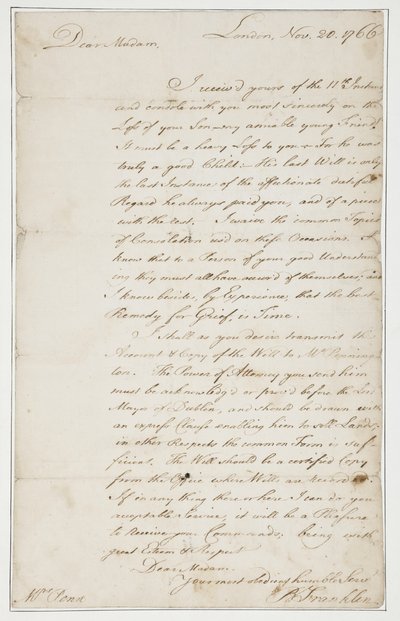 London, Nov. 20. 1766
Dear Madam,
I receiv'd yours of the 11th Instant
and condole with you most sincerely on the
Loss of your Son my amiable young Friend.
It must be a heavy Loss to you For he was
truly a good Child: His last Will is only
the last Instance of the affectionate dutiful
Regard he always paid you, and of a piece
with the rest. I waive the common Topics
of Consolation used on these Occasions. I
know that to a Person of your good Understand-
ing they must all have occur'd of themselves; and
I know besides, by Experience, that the best
Remedy for Grief, is Time.
I shall as you desire transmit the
Account & Copy of the Will to Mr Penning-
ton. The Power of Attorney you send him
must be acknowledg'd or prov'd before the Lord
Mayor of Dublin, and should be drawn with
an express Clause enabling him to sell Lands;
in other Respects the common Form is suf-
ficient. The Will should be a certified Copy
from the Office where Wills are recorded.
If in any thing there or here I can do you
acceptable Service, it will be a Pleasure
to receive your Commands, being with
great Esteem & Respect
Dear Madam,
Your most obedient humble Servt
Mrs Penn
B Franklin